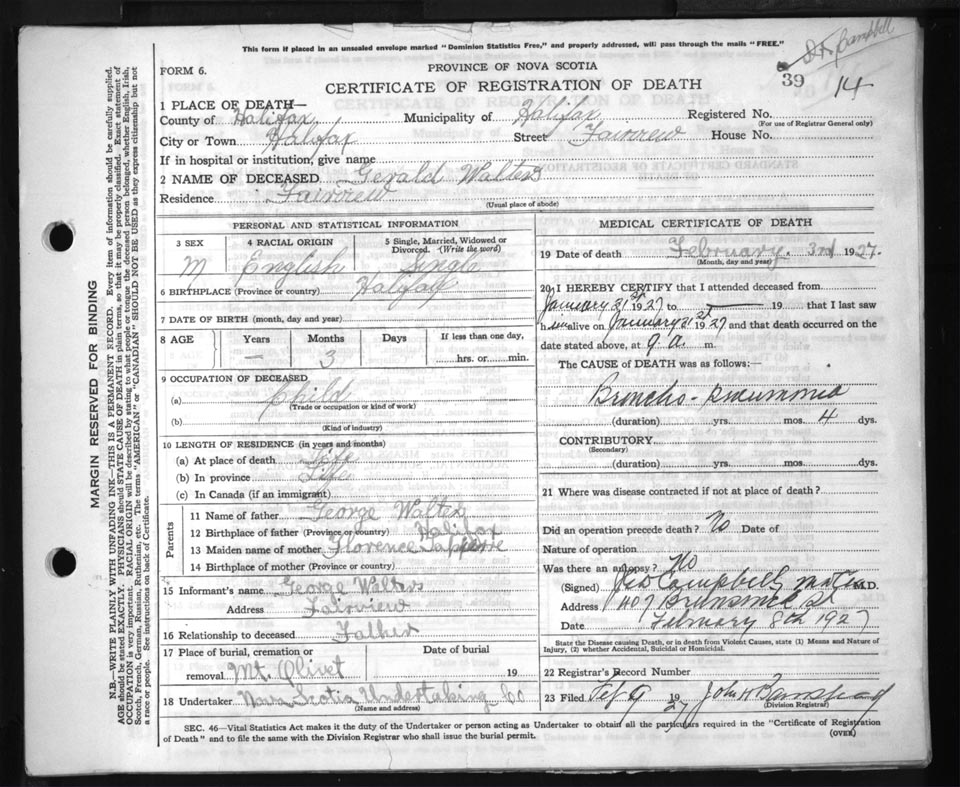 This form if placed in an unsealed envelope marked "Dominion Statistics Free," and properly addressed, will pass through the mails "FREE."
Dr Campbell
FORM 6.
PROVINCE OF NOVA SCOTIA
CERTIFICATE OF REGISTRATION OF DEATH
39
14
1 PLACE OF DEATH—
County of Halifax Municipality of Halifax Registered No.
(For use of Registrar General only)
City or Town Halifax Street Fairview House No.
If in hospital or institution, give name
2 NAME OF DECEASED Gerald Walters
Residence Fairview
(Usual place of abode)
PERSONAL AND STATISTICAL INFORMATION
3 SEX 4 RACIAL ORIGIN 5 Single, Married, Widowed or Divorced. (Write the word)
M English Single
6 BIRTHPLACE (Province or country) Halifax
7 DATE OF BIRTH (month, day and year)
8 AGE Years Months Days If less than one day,
— 3 hrs. or min.
9 OCCUPATION OF DECEASED
(a) Child
(Trade or occupation or kind of work)
(b)
(Kind of industry)
10 LENGTH OF RESIDENCE (in years and months)
(a) At place of death Life
(b) In province Life
(c) In Canada (if an immigrant)
Parents
11 Name of father George Walter
12 Birthplace of father (Province or country) Halifax
13 Maiden name of mother Florence
14 Birthplace of mother (Province or Country)
15 Informant's name George Walters
Address Fairview
16 Relationship to deceased Father
17 Place of burial, cremation or removal Mt. Olivet Date of burial 19
18 Undertaker Nova Scotia Undertaking Co
(Name and address)
MEDICAL CERTIFICATE OF DEATH
19 Date of death February. 3rd 1927.
(Month, day and year)
20 I HEREBY CERTIFY that I attended deceased from
January 31st 1927 to — 19 that I last saw
him alive on January 31st 1927 and that death occurred on the
date stated above, at 9 a. m.
The CAUSE OF DEATH was as follows:—
Broncho-pneumonia
(duration) yrs. mos. 4 dys.
CONTRIBUTORY
(Secondary)
(duration) yrs. mos. dys.
21 Where was disease contracted if not at place of death?
Did an operation precede death? No Date of
Nature of operation
Was there an autopsy? No
(Signed) Campbell M.D.
Address 407 Brunswick St
Date February 8th 1927
State the Disease causing Death, or in death from Violent Causes, state (1) Means and Nature of Injury, (2) whether Accidental, Suicidal or Homicidal.
22 Registrar's Record Number
23 Filed Feb 9 1927 John H
(Division Registrar)
SEC. 46—Vital Statistics Act makes it the duty of the Undertaker or person acting as Undertaker to obtain all the particulars required in the "Certificate of Registration
of Death" and to file the same with the Division Registrar who shall issue the burial permit.
(OVER)
MARGIN RESERVED FOR BINDING
N.B.—WRITE PLAINLY WITH UNFADING INK—THIS IS A PERMANENT RECORD. Every item of information should be carefully supplied.
AGE should be stated EXACTLY. PHYSICIANS should STATE CAUSE OF DEATH in plain terms, so that it may be properly classified. Exact statement of
OCCUPATION is very important. RACIAL ORIGIN will be described by stating to what people or tongue the deceased person belonged, whether English, Irish,
Scotch, French, German, Russian, Ruthenian, etc. The terms "AMERICAN" or "CANADIAN" SHOULD NOT BE USED as they express citizenship but not
a race or people. See instructions on back of Certificate.